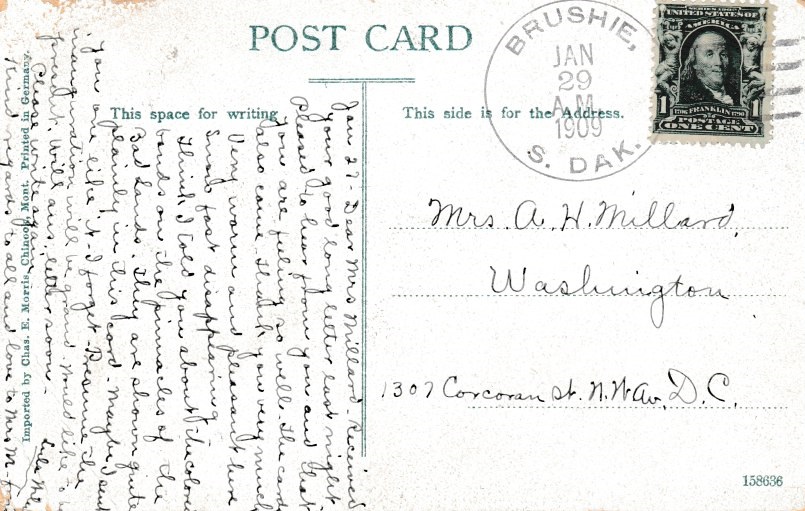 POST CARD
This space for writing
This side is for the Address.
BRUSHIE,
JAN
29
A.M.
1909
S. DAK.
SERIES 1902
UNITED STATES OF
AMERICA
FRANKLIN
1 1
POSTAGE
ONE CENT
Mrs. A. H. Millard,
Washington
1307 Corcoran St. N.W. Av, D.C.
Jan 27- Dear Mrs Millard- Received
your good long letter last night.
Pleased to hear from you and that
you are feeling so well. The cards
also came. Thank you very much
Very warm and pleasant here
Snow fast disappearing.
Think I told you about the colored
bands on the pinnacles of the
Bad Lands. They are shown quite
plainly in this card. Maybe I sent
you one like it- I forget. Presume the
inauguration will be grand. Would like to be
present. Will ans. letter soon-
Please write again
Kind regards to all and love to Mrs M-
Imported by Chas. E. Morris, Chinook, Mont. Printed in Germany.
158636